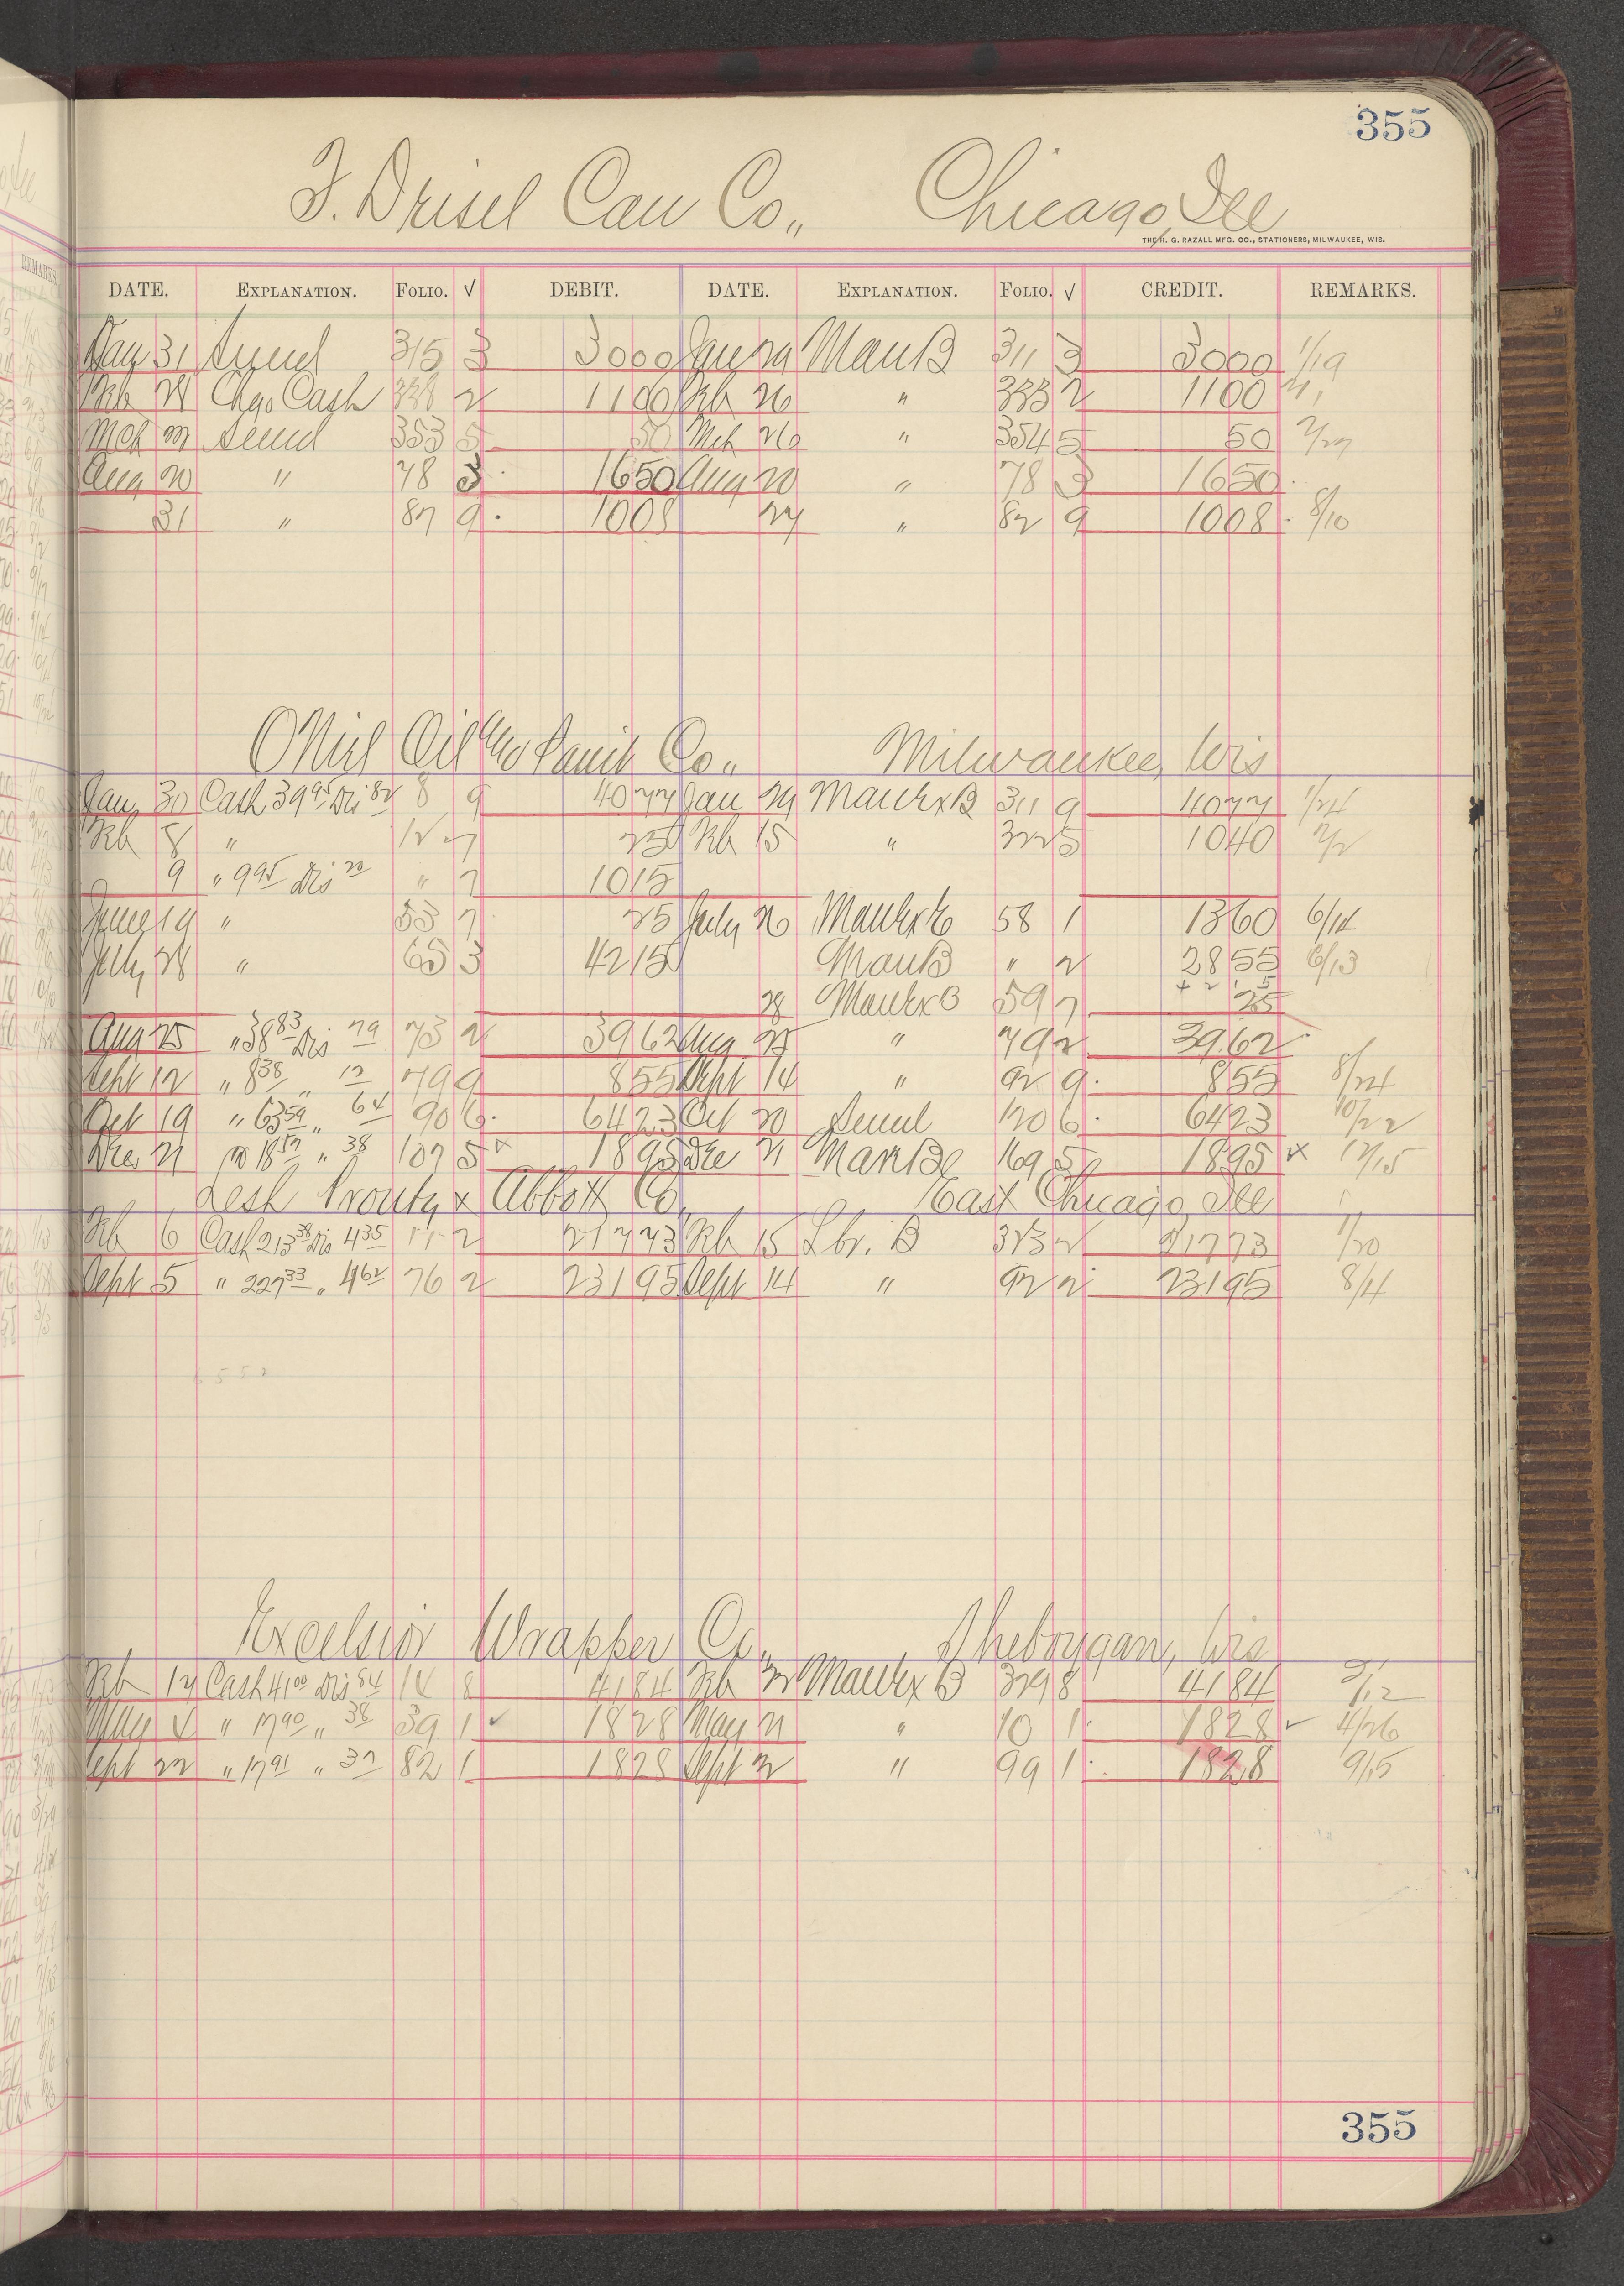 355
F. Drisel Can Co., Chicago, Ill
THE H. G. RAZALL MFG. CO., STATIONERS, MILWAUKEE, WIS.
DATE. EXPLANATION. FOLIO. √ DEBIT. DATE. EXPLANATION. FOLIO. √ CREDIT. REMARKS.
Jan 31 315 3 3000 Jan 29 Man B 311 3 3000 1/19
Feb 28 Chgo Cash 338 2 1100 Feb 26 " 333 2 1100
Mch 353 5 50 Mch 26 " 354 5 50
Aug 20 " 78 3 1650 Aug 20 " 78 3 1650
31 " 87 9 1008 27 " 82 9 1008 8/10
Oil Co., Milwaukee, Wis
Jan 30 Cash 39 95 Dis 82 8 9 4077 Jan 29 B 311 9 4077 1/24
Feb 8 " 12 7 25 Feb 15 " 322 5 1040 2/2
9 " 9 95 Dis 20 " 7 1015
June 19 " 53 7 25 July 26 58 1 1360 6/14
July 28 " 65 3 4215 Man B " 2 2855 6/13
28 59 7 25
Aug 25 " 38 83 Dis 79 73 2 3962 Aug 25 " 79 2 3962
Sept 12 " 8 38 " 17 79 9 855 Sept 14 " 92 9 855 8/24
Oct 19 " 63 59 " 64 90 6 6423 Oct 20 120 6 6423 10/22
Dec 21 18 57 " 38 107 5 1895 Dec 21 169 5 1895 x 12/15
Lesh Prouty & Abbott Co., East Chicago, Ill
Feb 6 Cash 213 38 Dis 4 35 11 2 21773 Feb 15 Lbr. B 323 2 21773 1/20
Sept 5 " 227 33 " 4 62 76 2 23195 Sept 14 " 92 2 23195 8/4
Excelsior Wrapper Co., Sheboygan, Wis
Feb 17 Cash 41 00 Dis 84 14 8 4184 Feb 22 B 329 8 4184 2/12
May 4 " 17 90 " 38 39 1 ✓ 1828 May 21 " 10 1 1828 ✓ 4/26
Sept 22 " 17 91 " 37 82 1 1828 Sept 22 " 99 1 1828 9/15
355